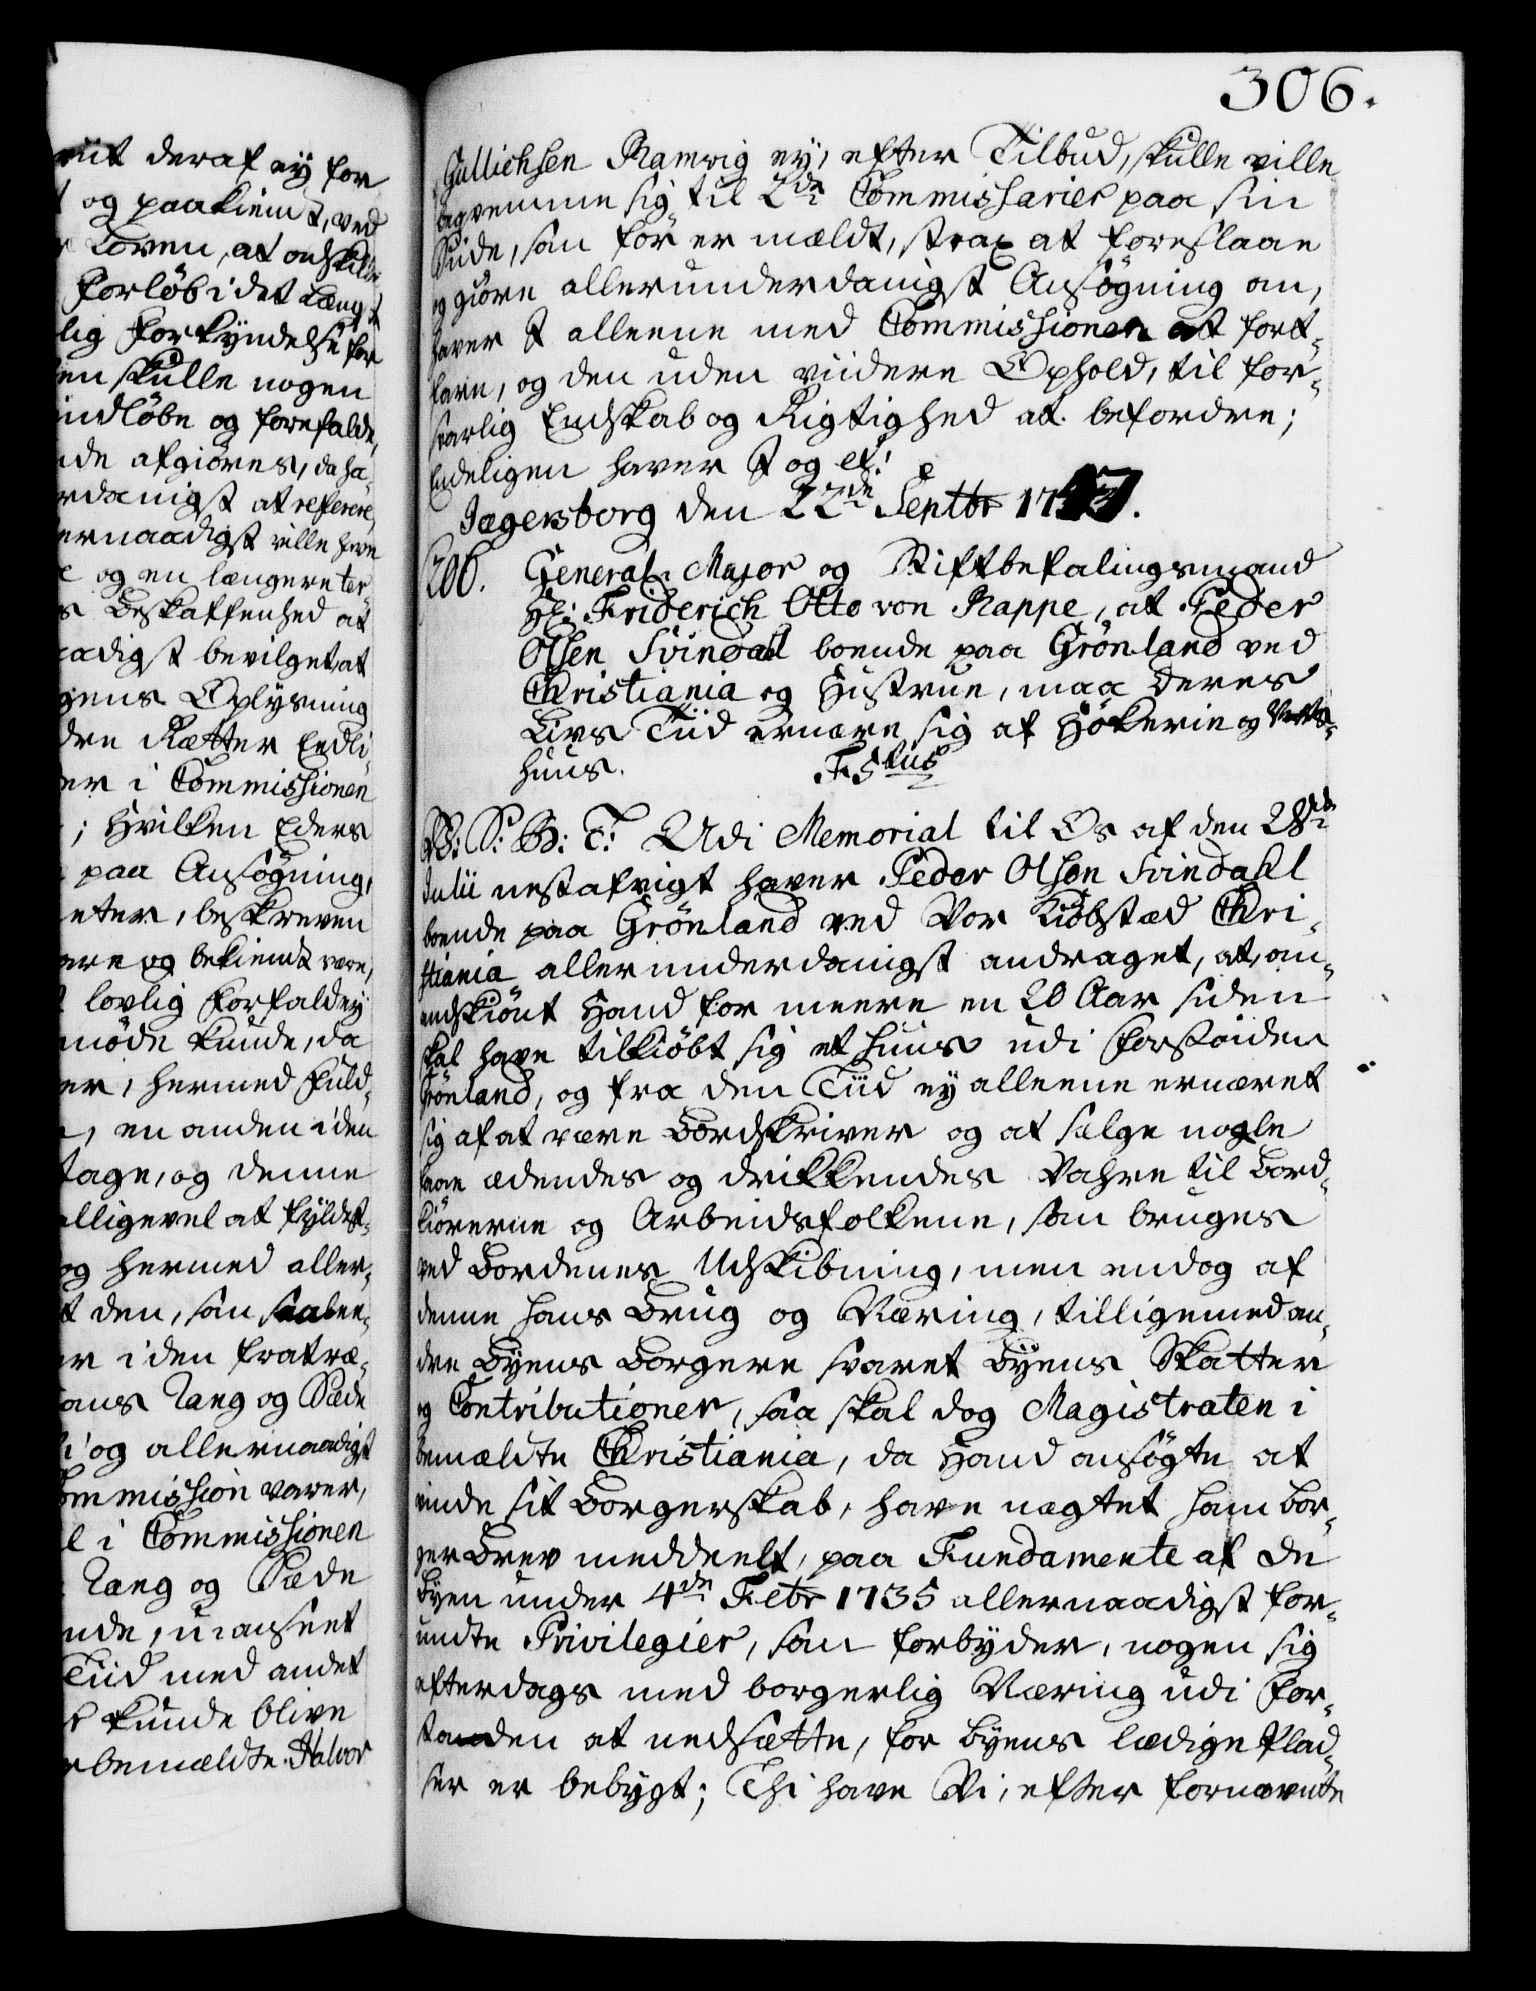 riit deraf ej for
og paakiendt, ved
Loven, at endskilt
forløb i det Læng
lig Forkyndelse for
en skulle nogen
indløbe og forefalde,
de afgiøres, da ha-
rdanigst at referere
ernaadigst ville have
og en længere ter-
s Beskaffenhed at
aadigst bevilget at
gens Oplysning
dre Rætter Endli-
er i Commissionen
; Hvilken Eders
paa Ansøgning,
eter, beskreven
are og bekiendt være,
lovlig Forfald ej
møde kunde, da
er, hermed fuld-
, en anden i den
tage, og denne
alligevel at fyldest-
og hermed aller-
t den, som saalee-
er i den fratræ-
ans Rang og Sæde
i og allernaadigst
Commission varer,
l i Commissionen
Rang og Sæde
nde, uanseet
Tiid med andet
kunde blive
rbemældte Halvor
306.
Gullichsen Ramvig ej, efter Tilbud, skulle ville
beqvemme sig til 2de Commissarier paa sin
Siide, som før er mældt, strax at foreslaae
og giøre allerunderdanigst Ansøgning om,
haver I alleene med Commissionen at fort-
fare, og den uden viidere Ophold, til for-
svarlig Endskab og Rigtighed at befordre;
Endeligen haver I og etc:
Jægersborg den 22de Septbr 1747.
206. General Major og Stiftbefalingsmand
Hr: Friderich Otto von Rappe, at Peder
Olsen Svindal boende paa Grønland ved
Christiania og Hustrue, maa deres
Livs Tiid ernære sig af Høkerie og Verts-
huus. F5tus
V: S: G: T: Udi Memorial til Os af den 28de
Julii nestafvigt haver Peder Olsen Svindahl
boende paa Grønland ved Vor Kiøbstæd Chri-
stiania allerunderdanigst andraget, at, an-
endskiønt Hand for meere en 20 Aar siden
skal have tilkiøbt sig et Huus udi Forstaden
Grønland, og fra den Tiid ej alleene ernæret
sig af at være Bordskriver og at sælge nogle
faae ædendes og drikkendes Vahre til Bord-
kiørerne og Arbeidsfolkene, som bruges
ved Bordenes Udskibning, men endog af
denne hans Brug og Næring, tilligemed an-
dre Byens Borgere svaret Byens Skatter
og Contributioner, saa skal dog Magistraten i
bemældte Christiania, da Hand ansøgte at
vinde sit Borgerskab, have nægtet ham Bor-
ger Brev meddeelt, paa Fundamente af de
Byen under 4de Febr 1735 allernaadigst for-
undte Privilegier, som forbyder, nogen sig
efterdags med borgerlig Næring udi For-
stæden at nedsætte, før Byens lædige Plad-
ser er bebygt; Thi have Vi, efter fornævnte